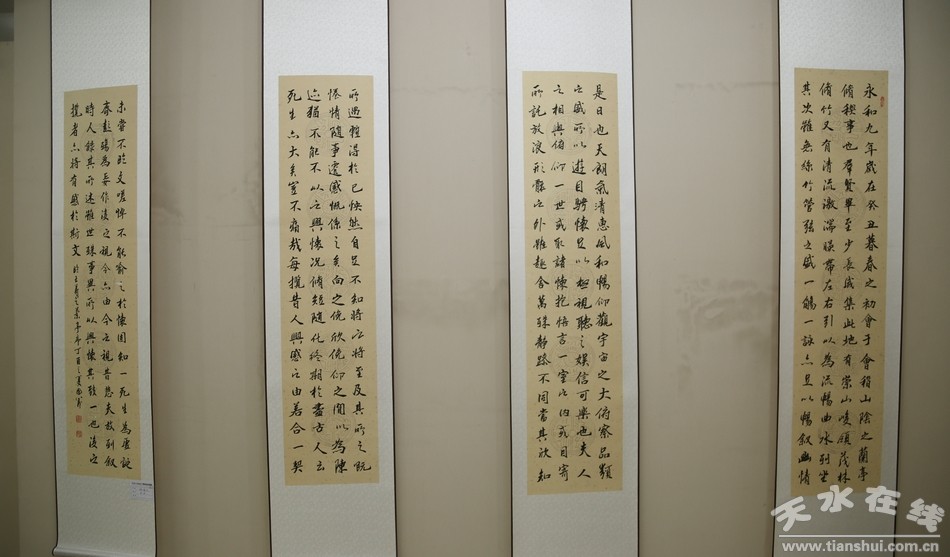 永和九年歲在癸丑暮春之初會于會稽山陰之蘭亭
脩稧事也羣賢畢至少長咸集此地有崇山峻領茂林
脩竹又有清流激湍暎帶左右引以為流觴曲水列坐
其次雖無絲竹管弦之盛一觴一詠亦足以暢叙幽情
是日也天朗氣清惠風和暢仰觀宇宙之大俯察品類
之盛所以遊目騁懷足以極視聽之娛信可樂也夫人
之相與俯仰一世或取諸懷抱悟言一室之內或因寄
所託放浪形骸之外雖趣舍萬殊靜躁不同當其欣於
所遇蹔得於己快然自足不知老之將至及其所之既
惓情隨事遷感慨係之矣向之所欣俛仰之閒以為陳
迹猶不能不以之興懷況脩短隨化終期於盡古人云
死生亦大矣豈不痛哉每攬昔人興感之由若合一契
未嘗不臨文嗟悼不能喻之於懷固知一死生為虛誕
齊彭殤為妄作後之視今亦由今之視昔悲夫故列叙
時人錄其所述雖世殊事異所以興懷其致一也後之
攬者亦將有感於斯文 王羲之蘭亭序丁酉之夏
天水在线
www.tianshui.com.cn